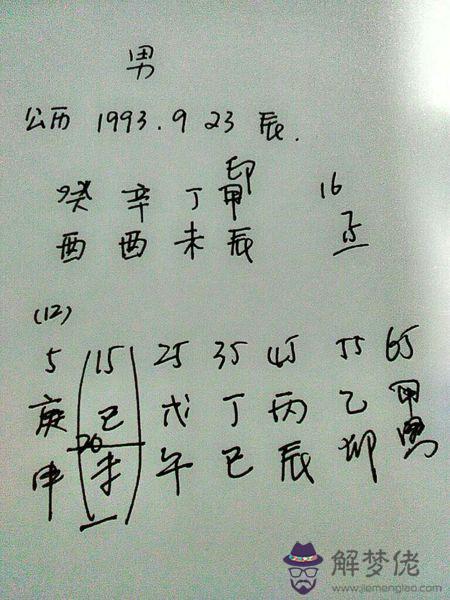 男
公历 1993.9 23 辰.
印
癸 辛 丁 甲 16
酉 酉 未 辰
(12)
5 15 25 35 45 55 65
庚 己 戊 丁 丙 乙 甲
20
申 未 午 巳 辰 卯 寅
解梦佬
www.jiemenglao.com